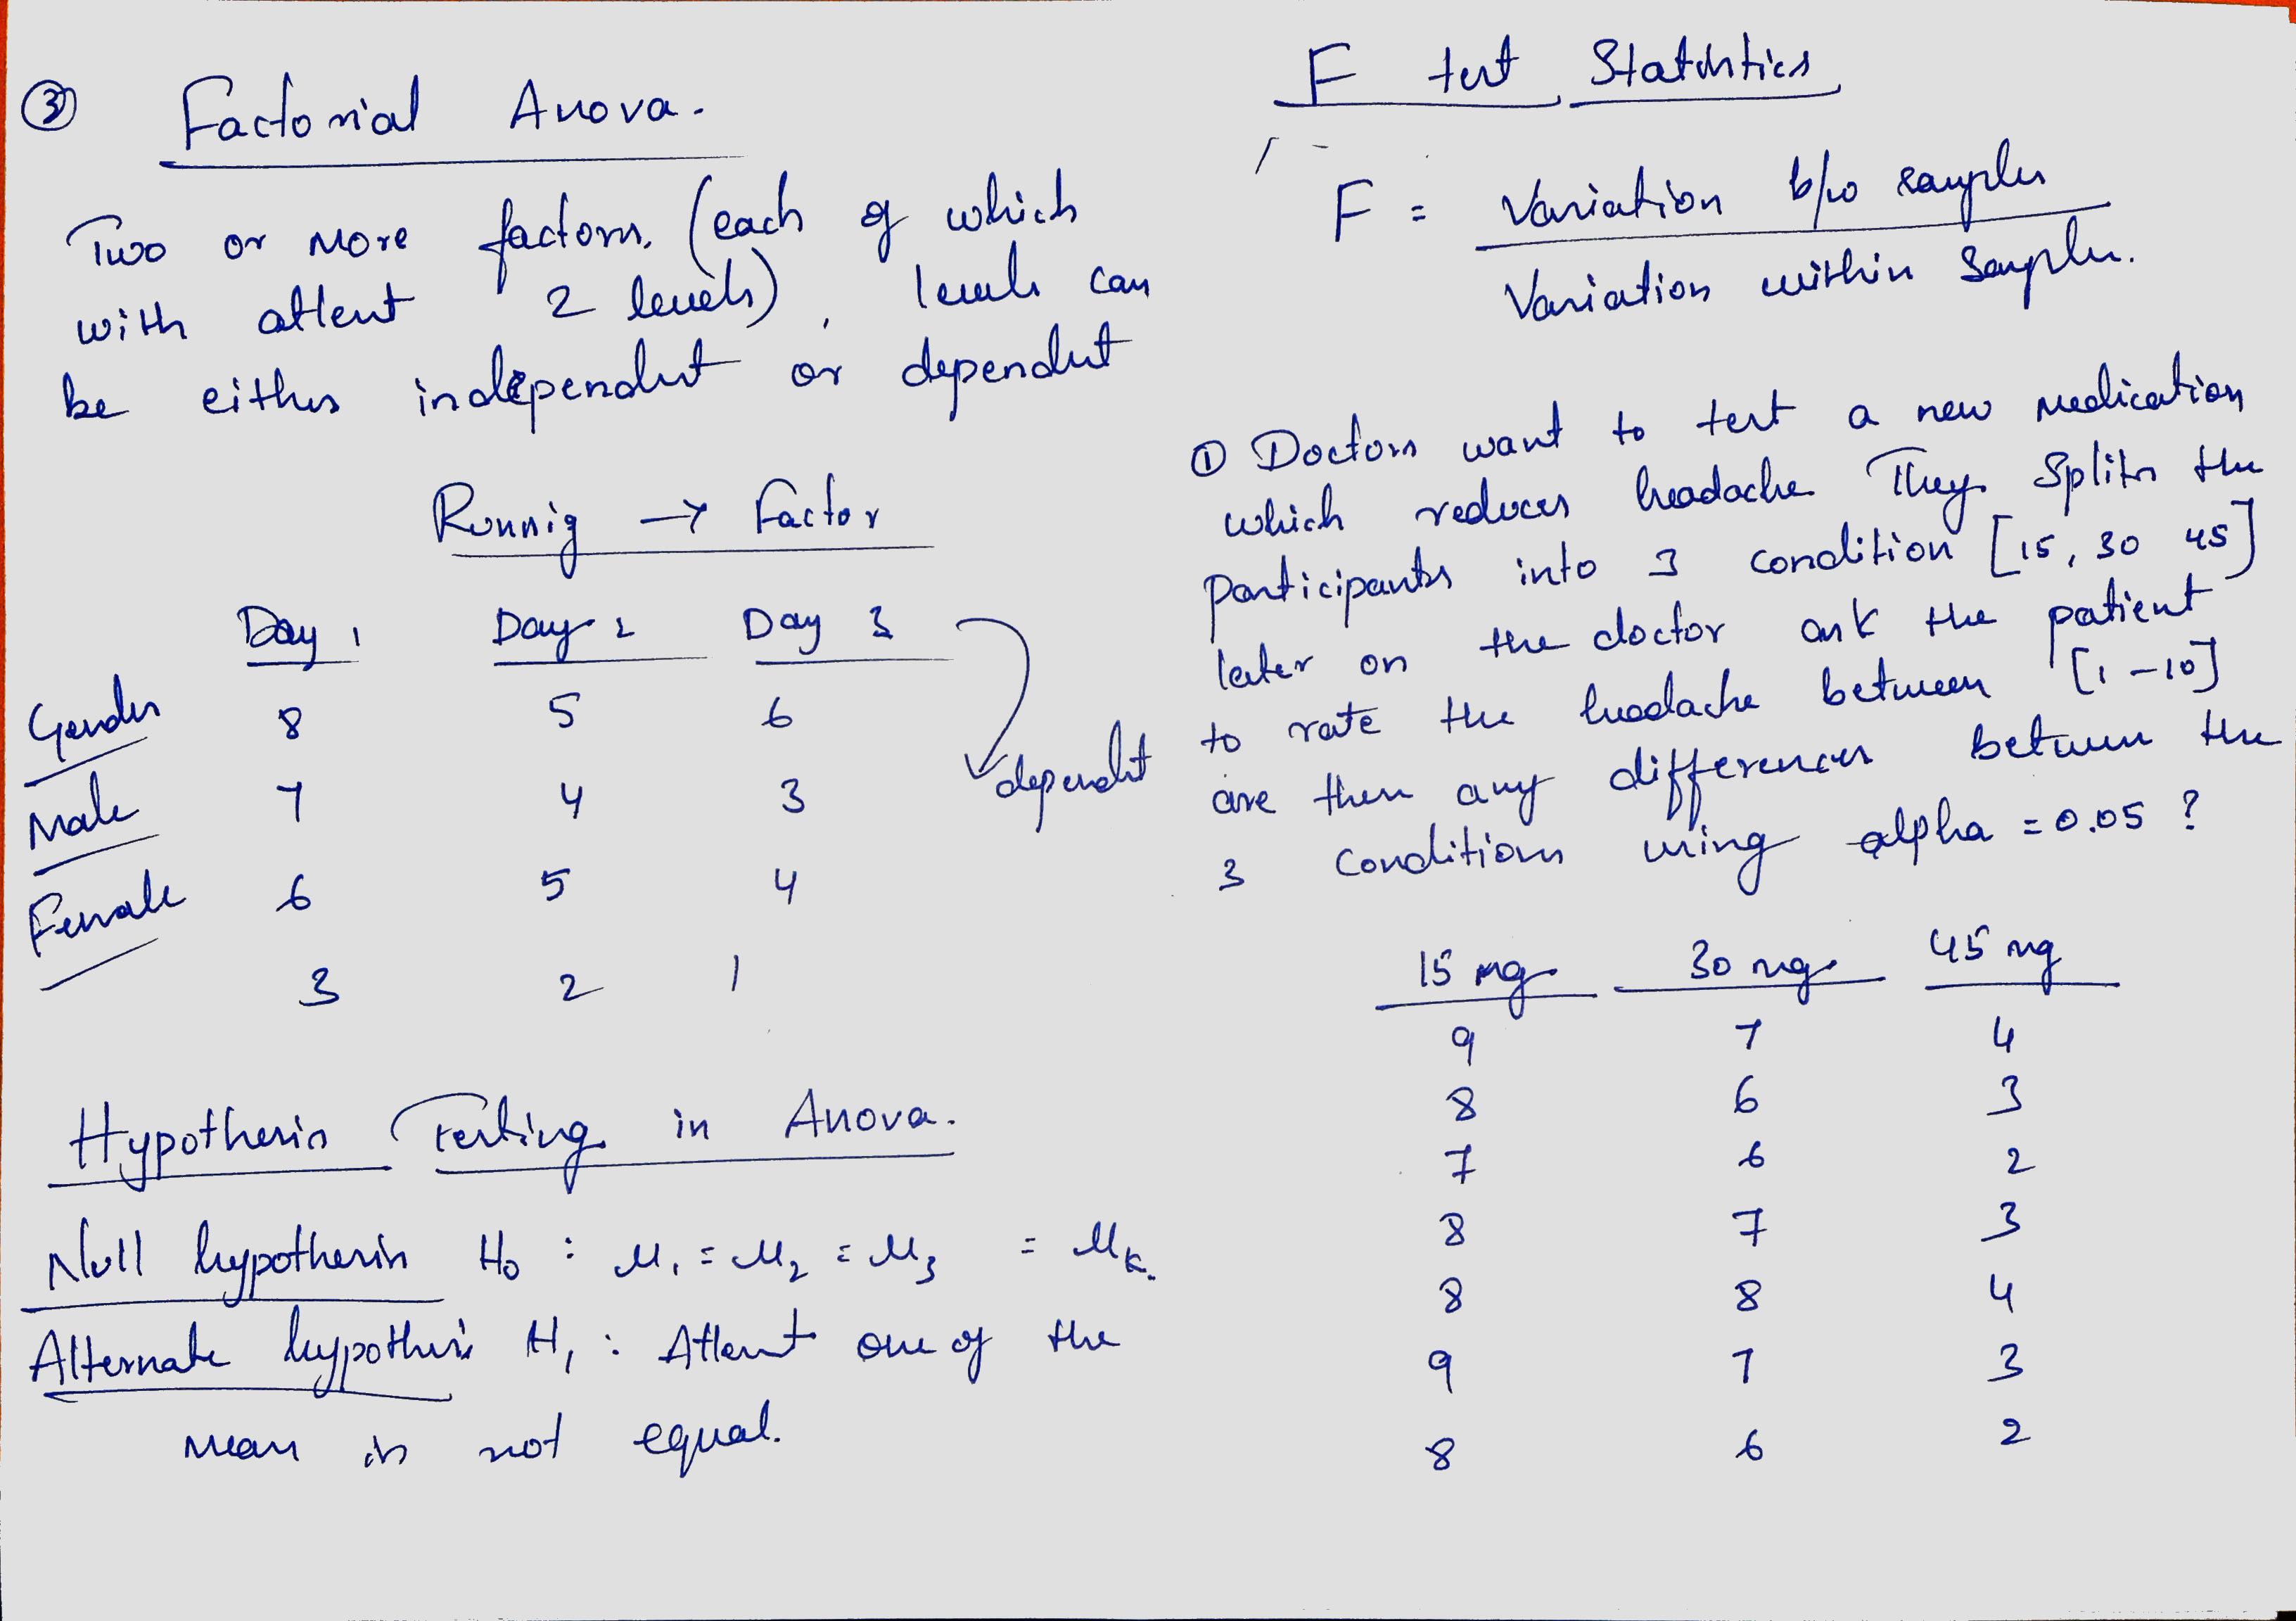 ③ Factorial Anova.
Two or more factors. (each of which
with atleast 2 levels), levels can
be either independent or dependent
Runnig → Factor
Day 1 Day 2 Day 3
Gender 8 5 6
Male 7 4 3 dependent
Female 6 5 4
3 2 1
Hypothesis Testing in Anova.
Null hypothesis H₀ : μ₁ = μ₂ = μ₃ = μₖ.
Alternate hypothesis H₁ : Atleast one of the
mean is not equal.
F test Statistics
F = Variation b/w samples
Variation within Samples.
① Doctors want to test a new medication
which reduces headache. They splits the
participants into 3 condition [15, 30 45]
later on the doctor ask the patient
to rate the headache between [1-10]
are there any differences between the
3 conditions using alpha = 0.05 ?
15 mg 30 mg. 45 mg
9 7 4
8 6 3
7 6 2
8 7 3
8 8 4
9 7 3
8 6 2